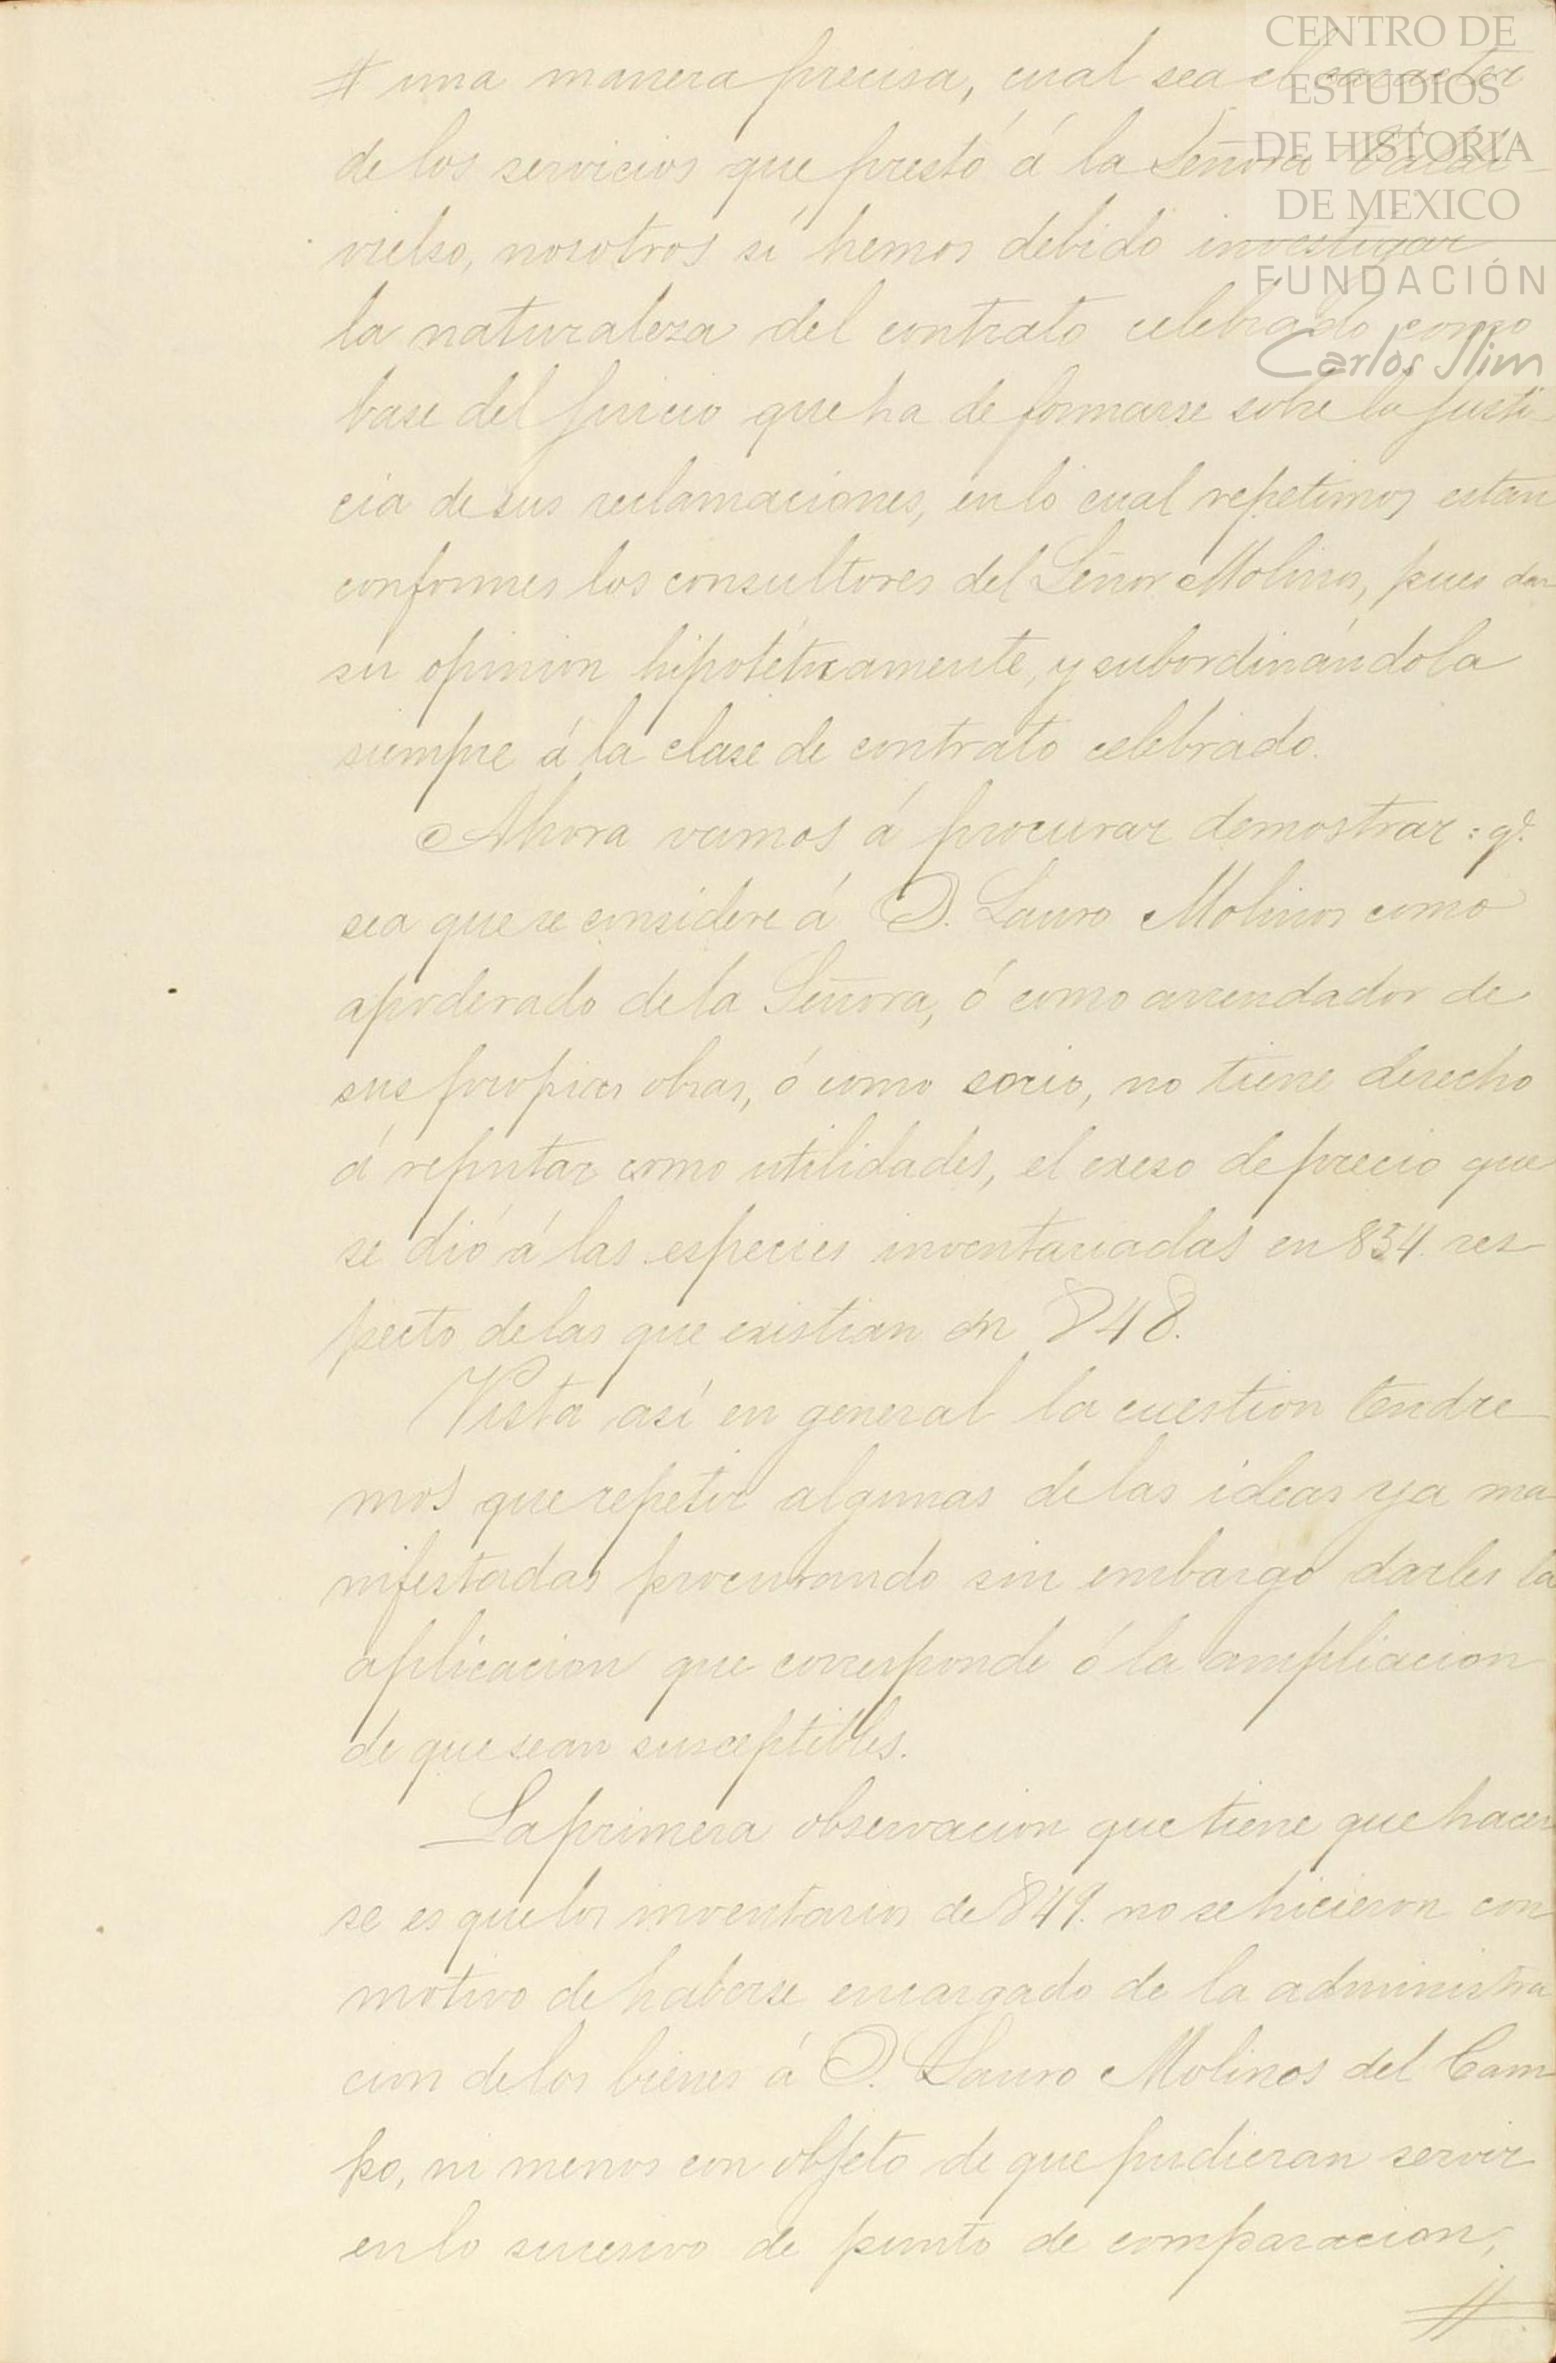 CENTRO DE
ESTUDIOS
DE HISTORIA
DE MEXICO
FUNDACIÓN
Carlos Slim
# una manera precisa, cual sea el caracter
de los servicios que prestó á la Señora
vielso, nosotros si hemos debido investigar
la naturaleza del contrato celebrado como
base del juicio que ha de formarse sobre la justi-
cia de sus reclamaciones, en lo cual repetimos estan
conformes los consultores del Señor Molinos, pues dan
su opinion hipotéticamente, y subordinándola
siempre á la clase de contrato celebrado.
Ahora vamos á procurar demostrar: qe.
sea que se considere á D. Lauro Molinos como
apoderado de la Señora, ó como arrendador de
sus propias obras, ó como socio, no tiene derecho
á reputar como utilidades, el exeso de precio que
se dió á las especies inventariadas en 854. res-
pecto de las que existian en 848.
Vista así en general la cuestion tendre-
mos que repetir algunas de las ideas ya ma-
nifestadas procurando sin embargo darles la
aplicacion que corresponde ó la ampliacion
de que sean susceptibles.
La primera observacion que tiene que hacer-
se es que los inventarios de 849. no se hicieron con
motivo de haberse encargado de la administra
cion de los bienes á D. Lauro Molinos del Cam-
po, ni menos con objeto de que pudieran servir
en lo sucesivo de punto de comparacion,
#